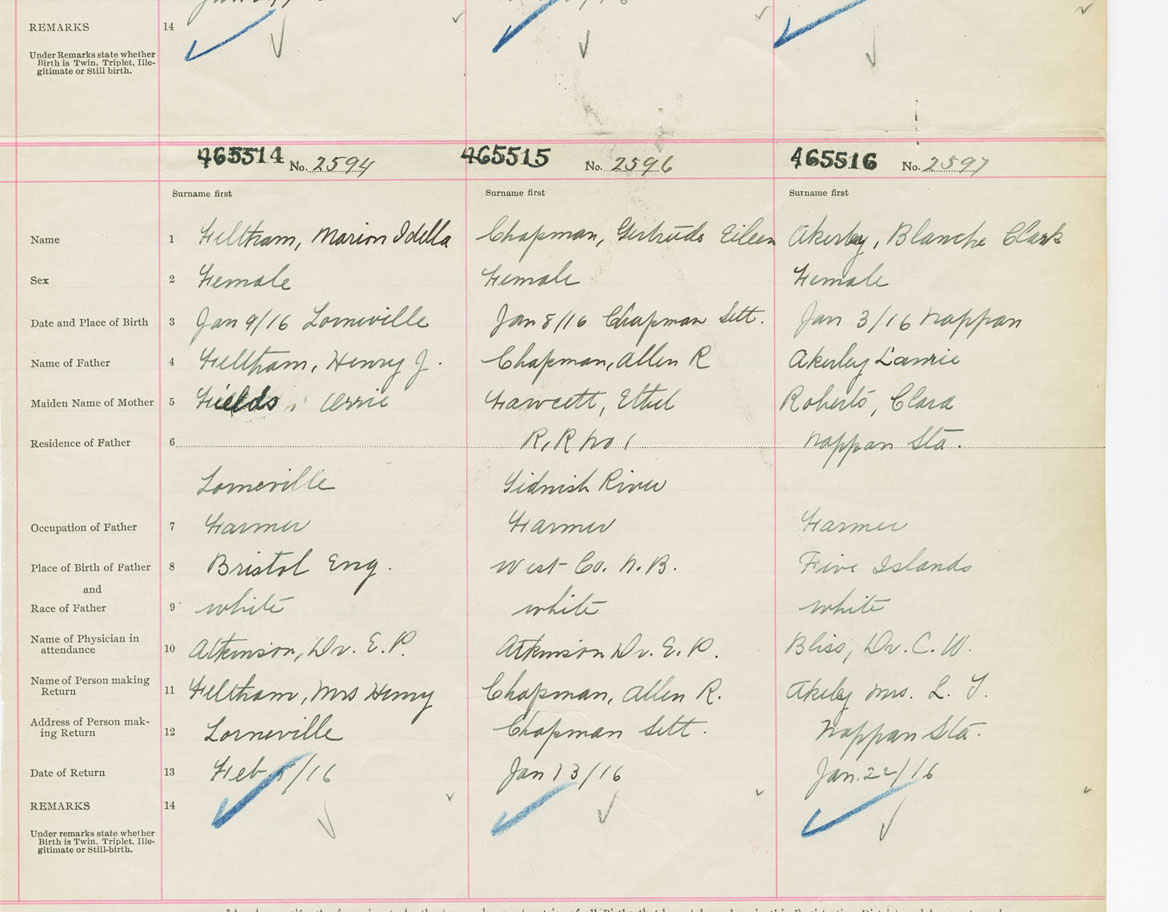 REMARKS 14
Under Remarks state whether
Birth is Twin, Triplet, Ille-
gitimate or Still-birth.
465514 No. 2594 465515 No. 2596 465516 No. 2597
Surname first Surname first Surname first
Name 1 Feltham, Marion Idella Chapman, Gertrude Eileen Akerley, Blanche Clark
Sex 2 Female Female Female
Date and Place of Birth 3 Jan 9/16 Lorneville Jan 8/16 Chapman Sett. Jan 3/16 Nappan
Name of Father 4 Feltham, Henry J. Chapman, Allen R Akerley Laurie
Maiden Name of Mother 5 Fields, Fawcett, Ethel Roberts, Clara
Residence of Father 6 R, R No 1 Nappan Sta.
Lorneville Tidnish River
Occupation of Father 7 Farmer Farmer Farmer
Place of Birth of Father 8 Bristol Eng. West Co. N. B. Five Islands
and
Race of Father 9 white white white
Name of Physician in
attendance 10 Atkinson, Dr. E. P. Atkinson Dr. E. P. Bliss, Dr. C. W.
Name of Person making
Return 11 Feltham, Mrs Henry Chapman, Allen R. Akerley Mrs. L. Y.
Address of Person mak-
ing Return 12 Lorneville Chapman Sett. Nappan Sta.
Date of Return 13 Feb /16 Jan 13/16 Jan. 22/16
REMARKS 14
Under remarks state whether
Birth is Twin, Triplet, Ille-
gitimate or Still-birth.